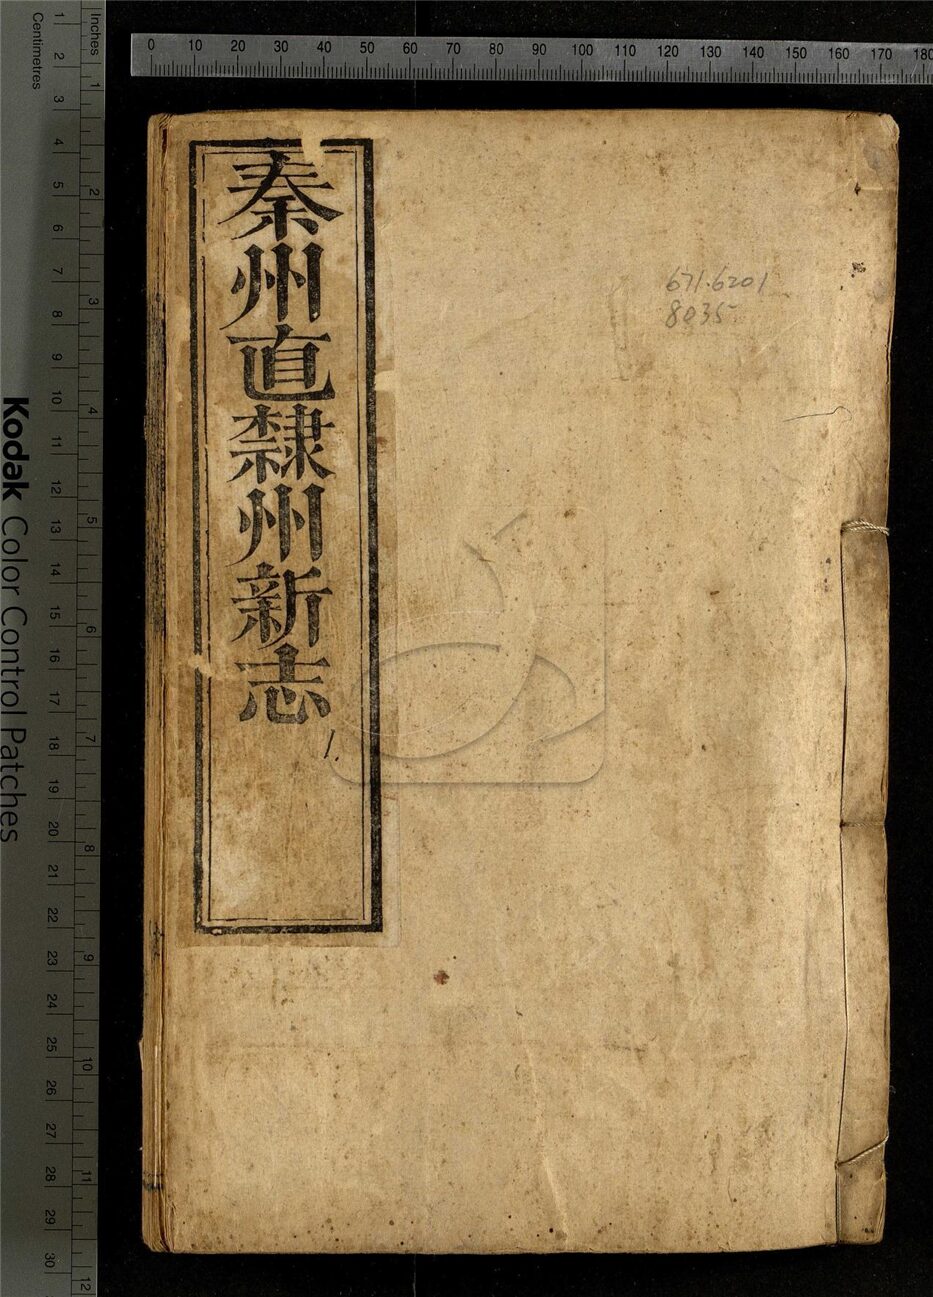 秦州直隸州新志
1.
671.6201
8035
Kodak Color Control Patches
Inches
1
2
3
4
5
6
7
8
9
10
11
12
Centimetres
1
2
3
4
5
6
7
8
9
10
11
12
13
14
15
16
17
18
19
20
21
22
23
24
25
26
27
28
29
30
0 10 20 30 40 50 60 70 80 90 100 110 120 130 140 150 160 170 180